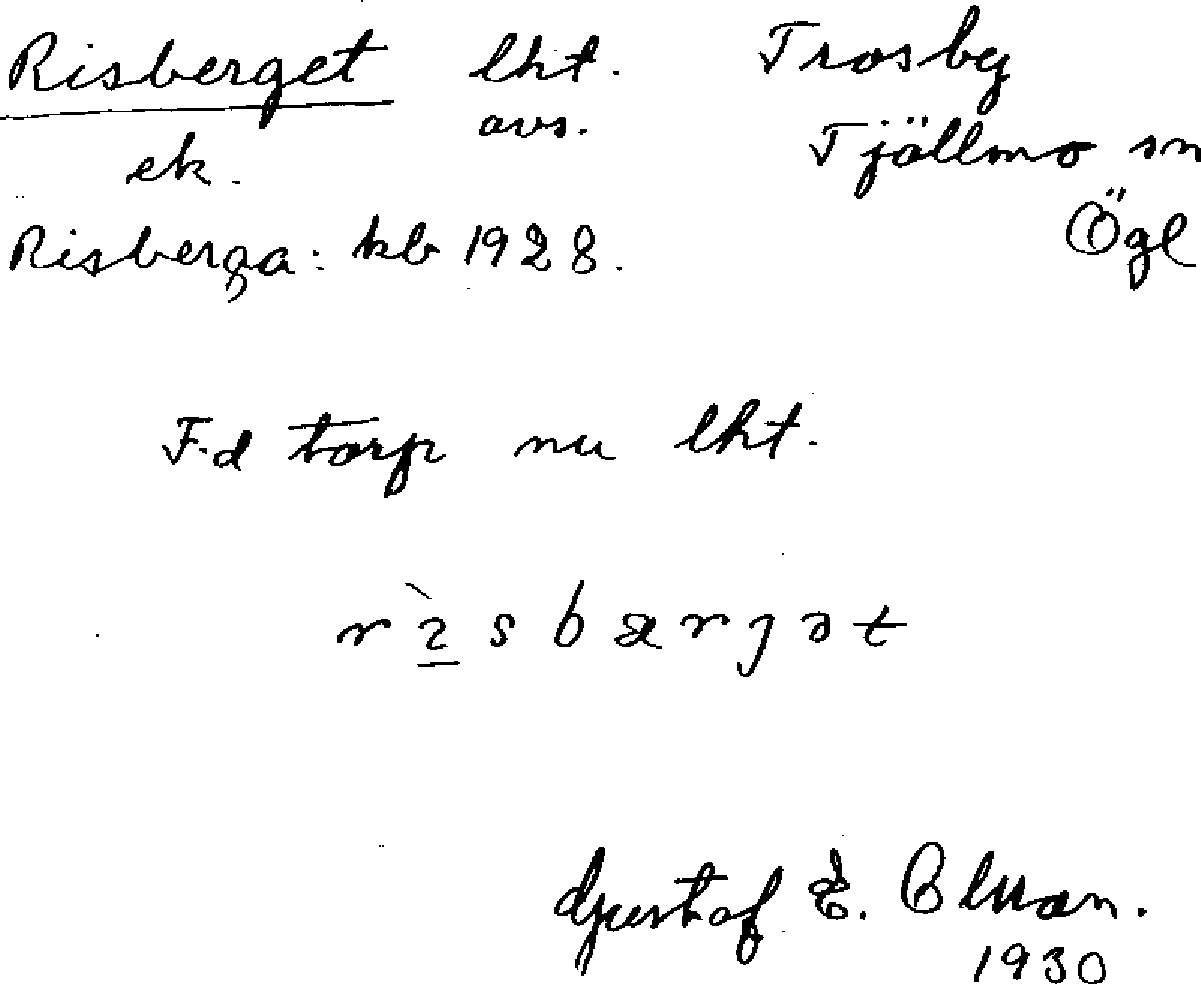 Risberget lht. Trosby
avs.
ek. Tjällmo sn
Risberga: kb 1928. Ögl
F.d torp nu lht.
Gustaf E.
1930